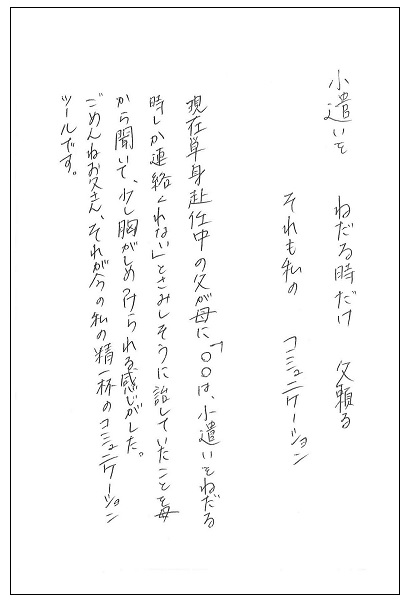 小遣いを　ねだる時だけ　父頼る
それも私の　コミュニケーション
現在単身赴任中の父が母に「○○は、小遣いをねだる
時しか連絡くれない」とさみしそうに話していたことを母
から聞いて、少し胸がしめつけられる感じがした。
ごめんねお父さん、それが今の私の精一杯のコミュニケーション
ツールです。